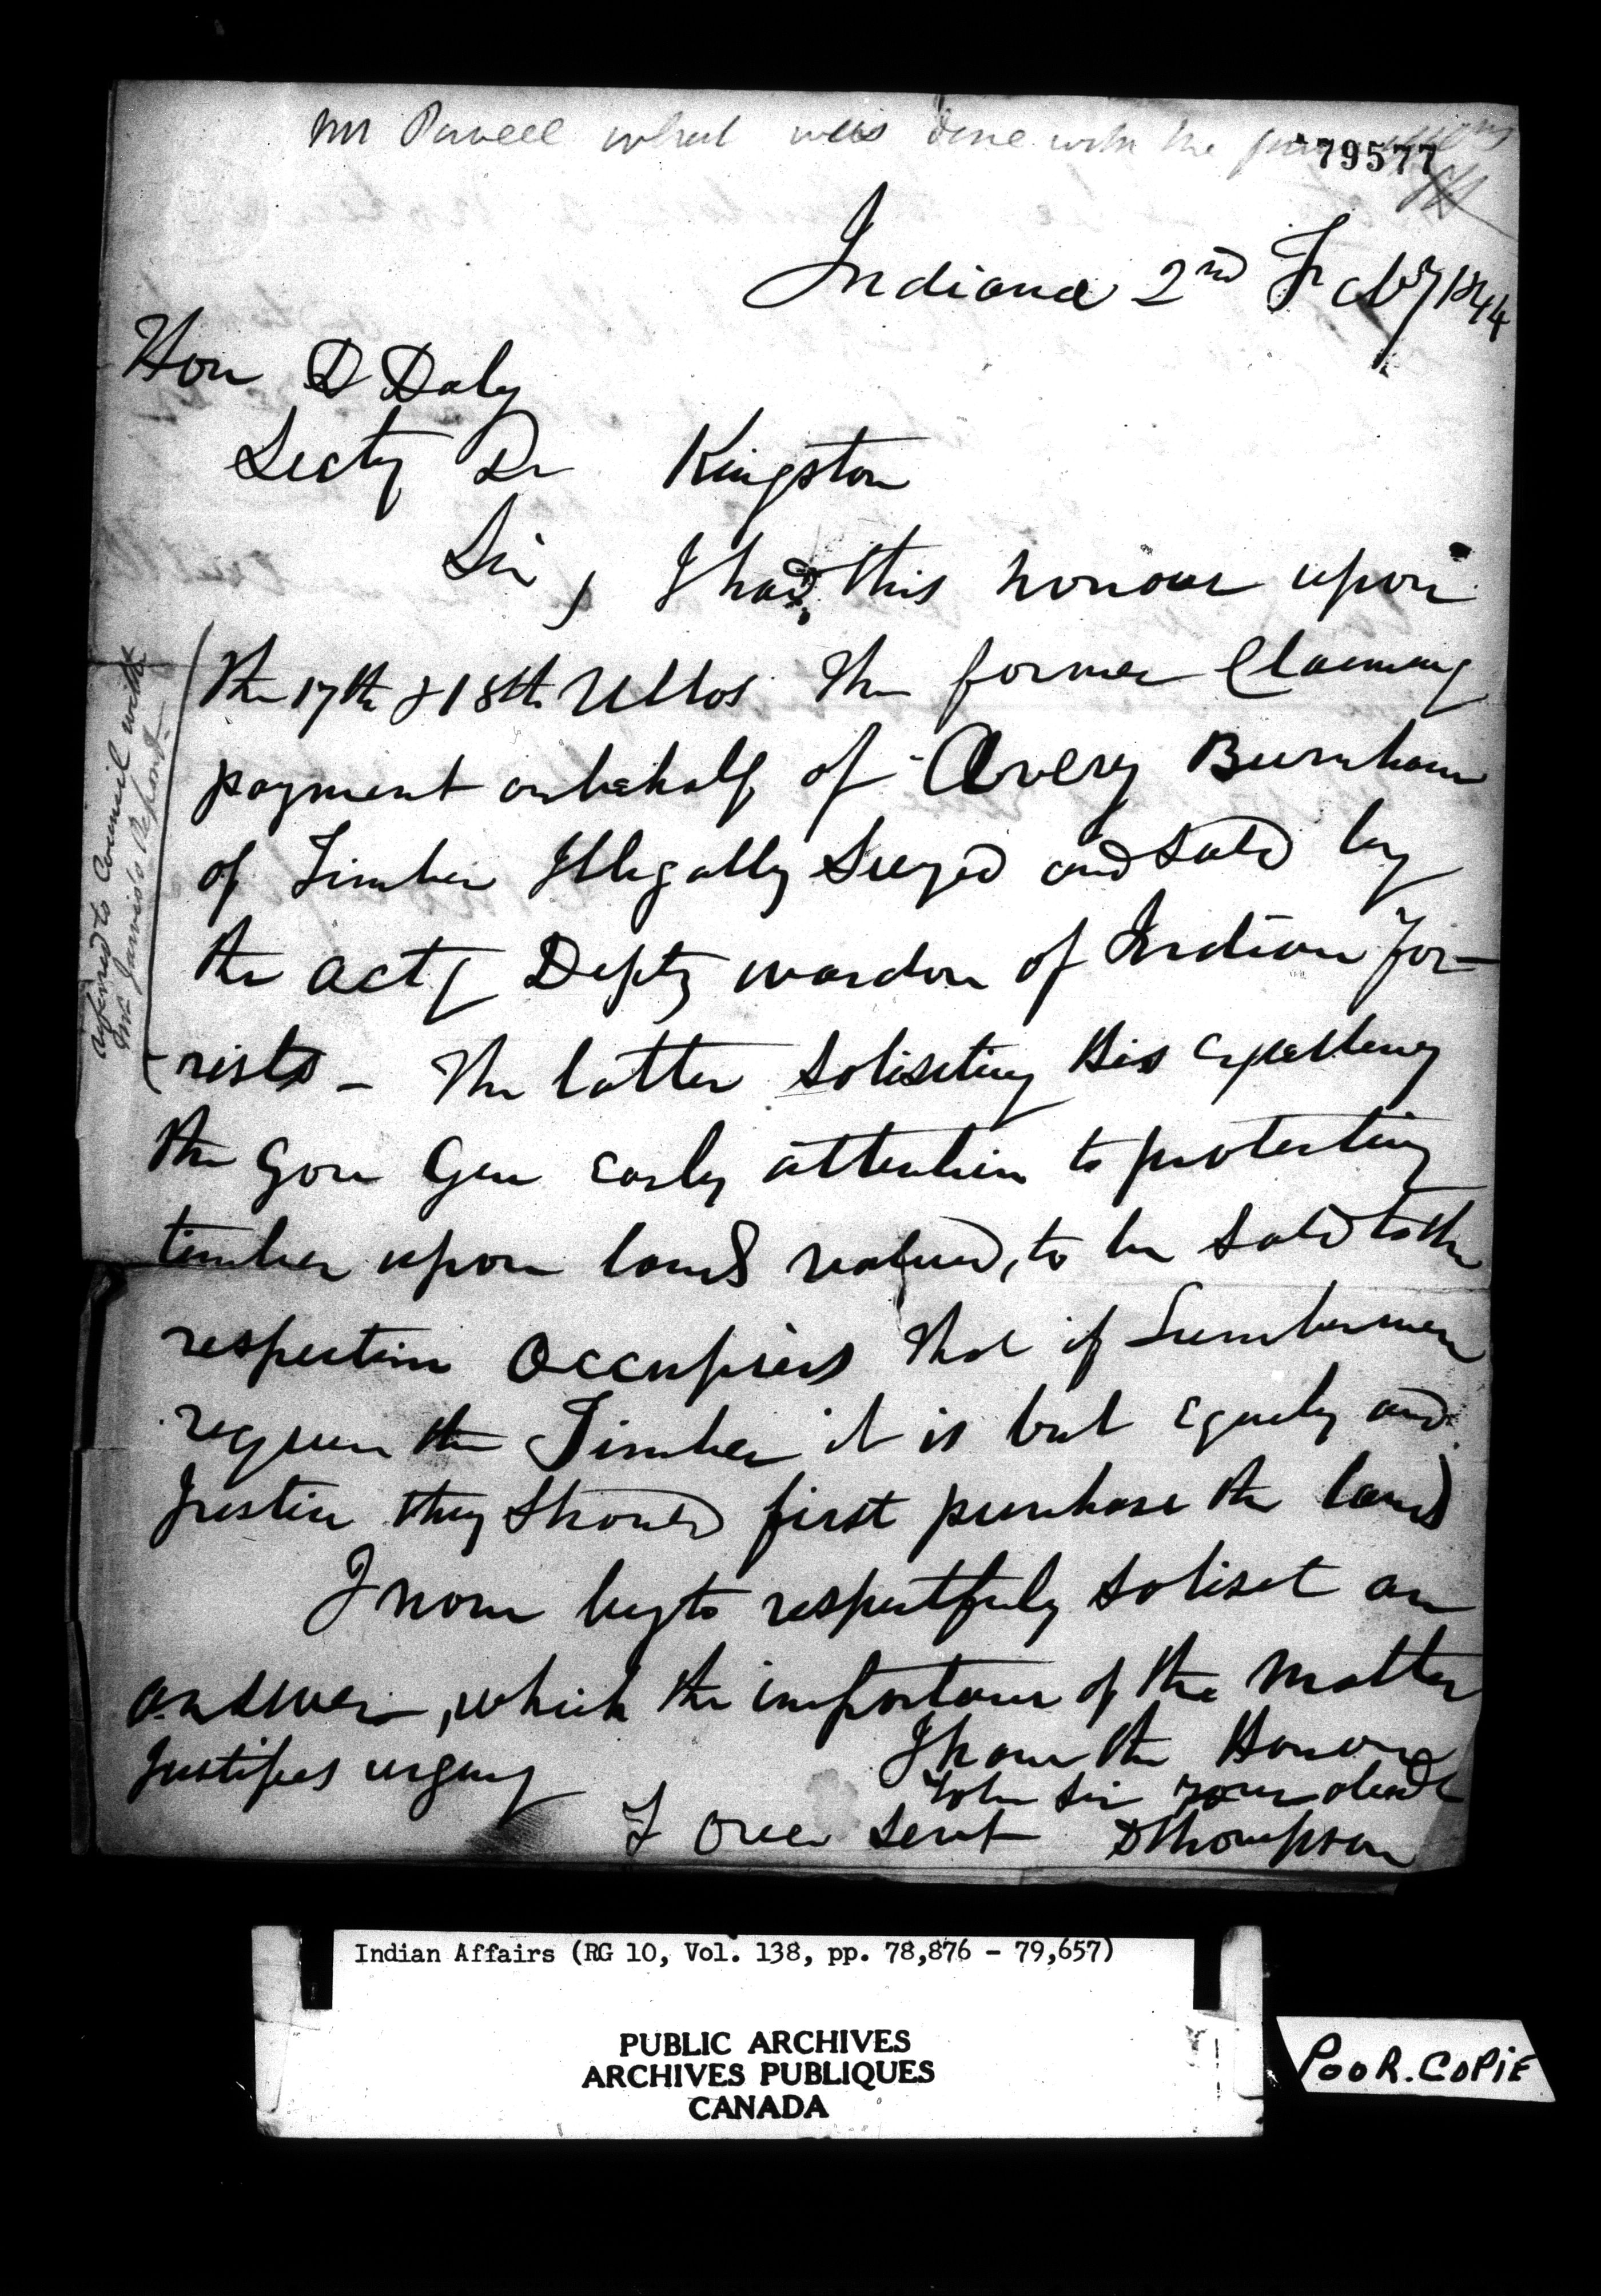 Mr Powell what was done with the
79577
Indiana 2nd Feby 1844
Hon D Daly
Secty &c Kingston
Sir, I had this honour upon
the 17th & 18th Ultos the former Claiming
payment on behalf of Avery Burnham
of Timber Illegally Siezed and Sold by
the actg Depty warden of Indian For-
-rists - The latter Solisiting His Excellency
the Gov Gen early attention to protecting
timber upon lands valued, to be Sold to the
respective Occupiers that if Lumbermen
require the Timber it is but equity and
Justice they Should first purchase the land
I now beg to respectfuly solisit an
answer, which the importance of the Matter
Justifies urgency
I have the Honour
To be Sir your obedt
Servt DThompson
T Over
refered to Council with
Mr Jarvis's Report -
Indian Affairs (RG 10, Vol. 138, pp. 78,876 - 79,657)
PUBLIC ARCHIVES
ARCHIVES PUBLIQUES
CANADA
POOR.COPIE